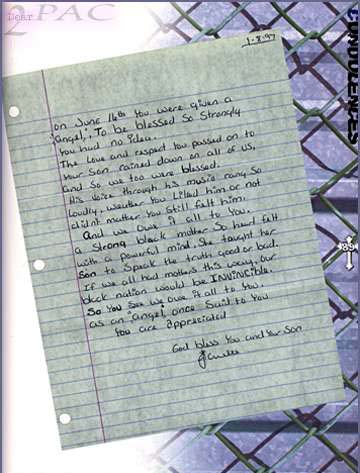 Dear
2PAC
1-8-97
on June 16th You were given a
"angel", To be blessed So Strongly
You had no idea.
The Love and respect You passed on to
Your Son rained down on all of us,
and So we too were blessed.
His Voice through his music rang So
Loudly, weather You Liked him or not
didnt matter You Still felt him.
And we owe it all to You.
a Strong black mother So heart felt
with a powerful mind. She taught her
Son to Speak the truth good or bad.
If we all had mothers this way, our
black nation would be INVINCIBLE.
So You See we owe it all to You.
as an "angel" once Said to You
You are appreciated
God bless You and Your Son